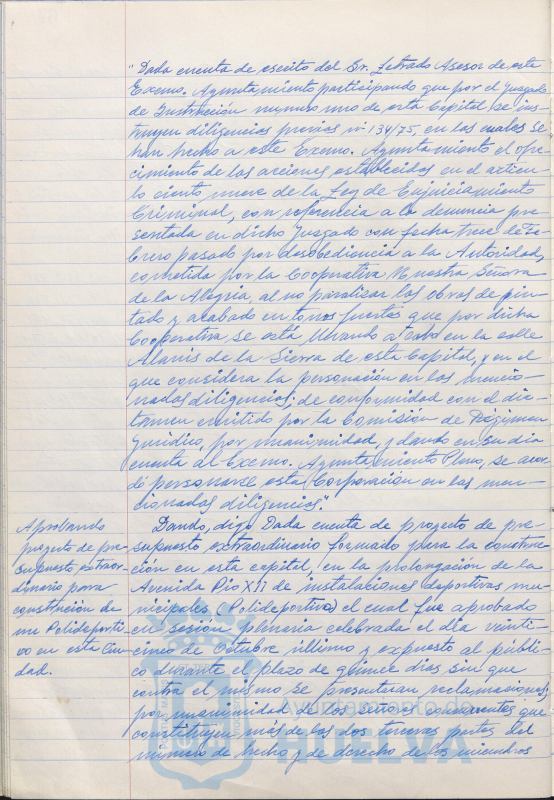 "Dada cuenta de escrito del Sr. Letrado Asesor de este
Excmo. Ayuntamiento participando que por el Juzgado
de Instrucción numero uno de esta Capital se ins-
truyen diligencias previas nº 134/75, en las cuales se
han hecho a este Excmo. Ayuntamiento el ofre-
cimiento de las acciones establecidas en el articu-
lo ciento nueve de la Ley de Enjuiciamiento
Criminal, con referencia a la denuncia pre-
sentada en dicho Juzgado con fecha trece de Fe-
brero pasado por desobediencia a la Autoridad,
cometida por la Cooperativa Nuestra Señora
de la Alegria, al no paralizar las obras de pin-
tado y acabado en tonos fuertes que por dicha
Cooperativa se está llevando a cabo en la calle
Alanis de la Sierra de esta Capital, y en el
que considera la personación en las mencio-
nadas diligencias; de conformidad con el dic-
tamen emitido por la Comisión de Régimen
Juridico, por unanimidad, y dando en su dia
cuenta al Excmo. Ayuntamiento Pleno, se acor-
dó personarse esta Corporación en las men-
cionadas diligencias."
Aprobando
proyecto de pre-
supuesto extraor-
dinario para
construcción de
un Polideporti-
vo en esta Ciu-
dad.
Dando, digo Dada cuenta de proyecto de pre-
supuesto extraordinario formado para la construc-
ción en esta capital, en la prolongación de la
Avenida Pio XII de instalaciones deportivas mu-
nicipales (Polideportivo) el cual fue aprobado
en sesión plenaria celebrada el día veinti-
cinco de Octubre ultimo y expuesto al públi-
co durante el plazo de quince dias sin que
contra el mismo se presentaran reclamaciones,
por unanimidad de los señores concurrentes que
constituyen más de las dos terceras partes del
número de hecho y de derecho de los miembros
Ayuntamiento de
HUELVA